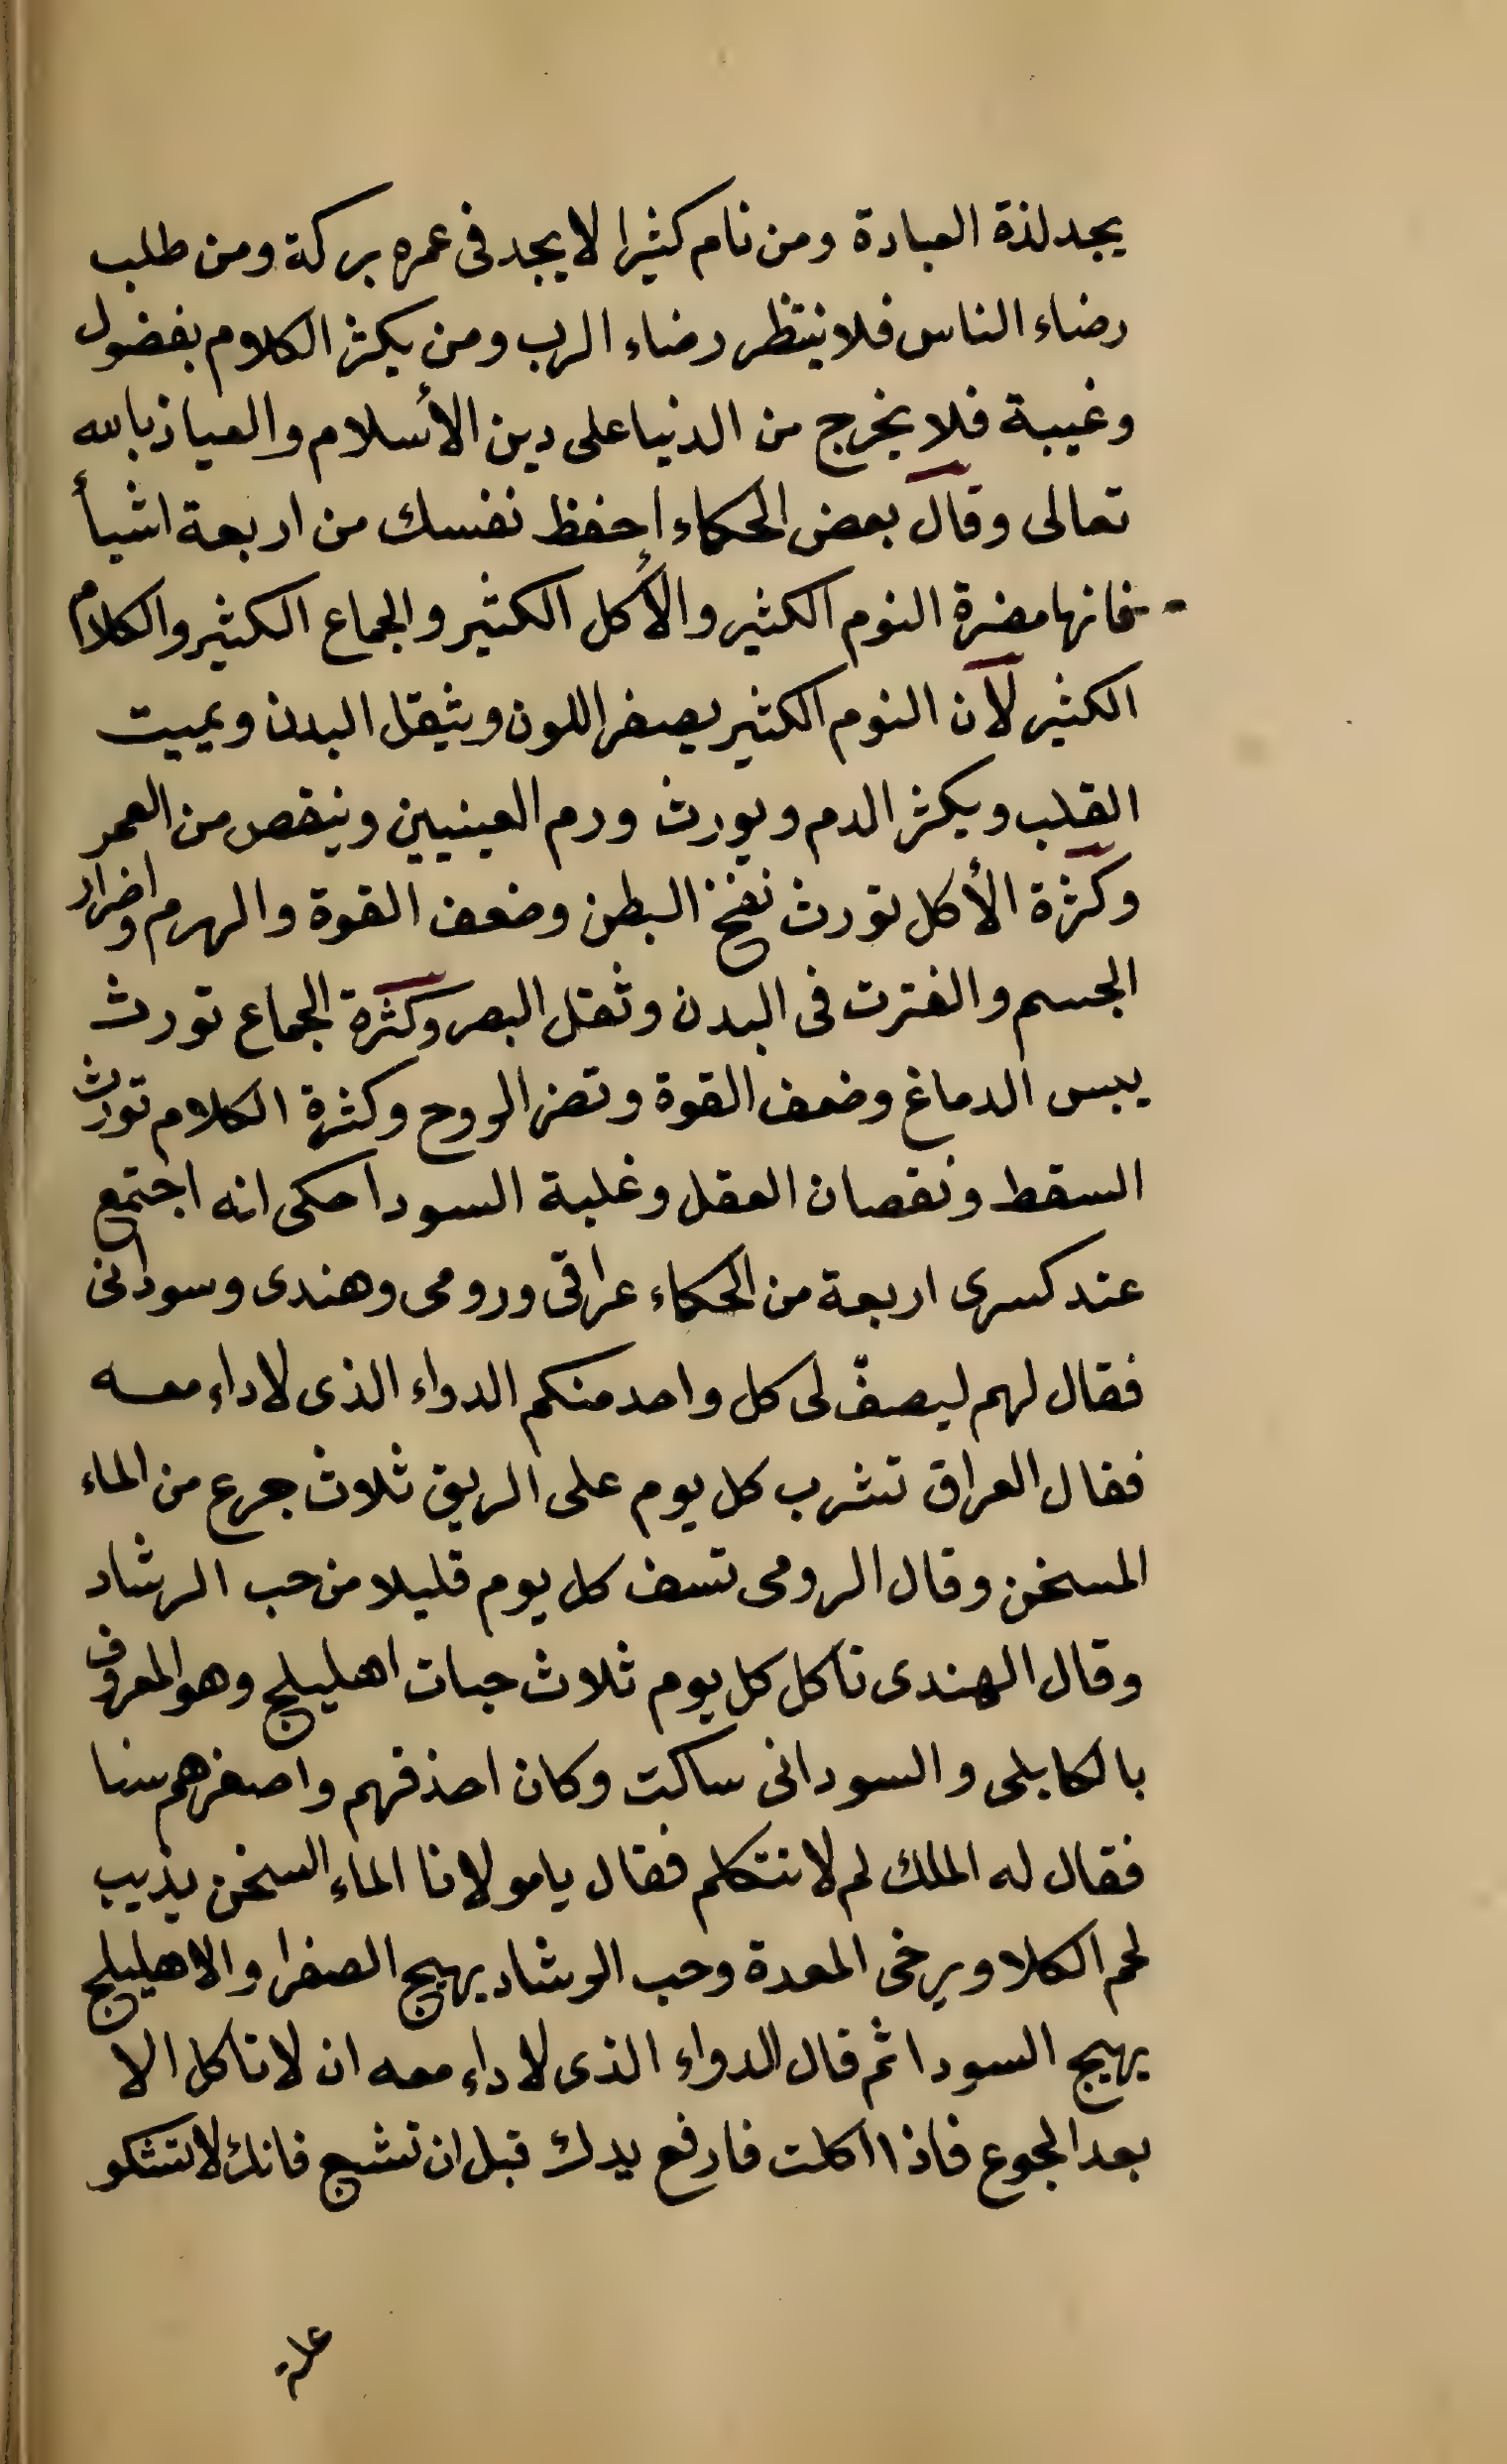 يجد لذة العبادة ومن نام كثيرا لا يجد فى عمره بركة ومن طلب
رضاء الناس فلا ينتظر رضاء الرب ومن يكثر الكلام بفضول
وغيبة فلا يخرج من الدنيا على دين الأسلام والعياذ بالله
تعالى وقال بعض الحكماء احفظ نفسك من اربعة اشيأ
فانها مضرة النوم الكثير والأكل الكثير والجماع الكثير والكلام
الكثير لأن النوم الكثير يصفر اللون ويثقل البدن ويميت
القلب ويكثر الدم ويورث ورم العينيين وينقص من العمر
وكثرة الأكل تورث نفخ البطن وضعف القوة والهرم واضرار
الجسم والفترت فى البدن وثقل البصر وكثرة الجماع تورث
يبس الدماغ وضعف القوة وتضر الروح وكثرة الكلام تورث
السقط ونقصان العقل وغلبة السودا حكى انه اجتمع
عند كسرى اربعة من الحكماء عراقى ورومى وهندى وسودانى
فقال لهم ليصف لى كل واحد منكم الدواء الذى لا داء معه
فقال العراق تشرب كل يوم على الريق ثلاث جرع من الماء
المسخن وقال الرومى تسف كل يوم قليلا من حب الرشاد
وقال الهندى تاكل كل يوم ثلاث حبات اهليلج وهو المعروف
بالكابلى والسودانى ساكت وكان احذقهم واصغرهم سنا
فقال له الملك لم لا تتكلم فقال يا مولانا الماء السخن يذيب
لحم الكلا ويرخى المعدة وحب الرشاد يهيج الصفرا والاهليلج
يهيج السودا ثم قال الدواء الذى لا داء معه ان لا تاكل الا
بعد الجوع فاذا اكلت فارفع يدك قبل ان تشبع فانك لا تشكو
علة